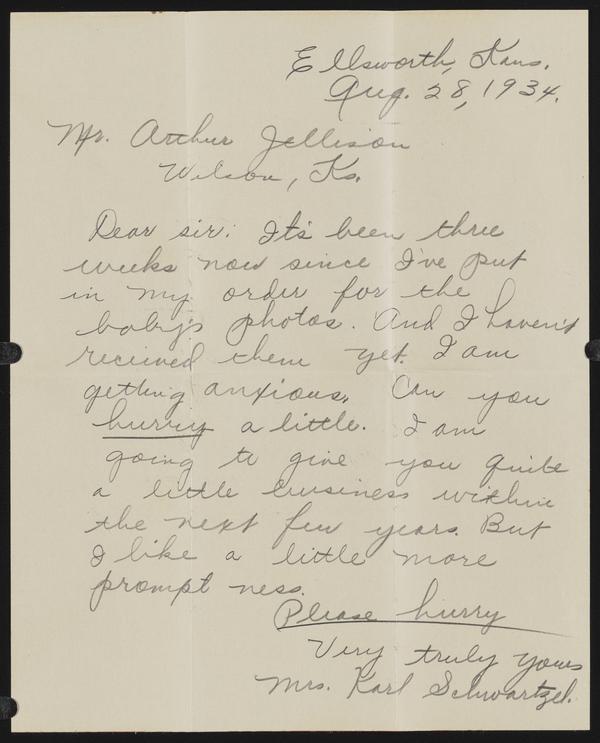 Ellsworth, Kans.
Aug. 28, 1934.
Mr. Arthur Jellison
Wilson, Ks.
Dear sir: It's been three
weeks now since I've put
in my order for the
baby's photos. And I haven't
received them yet. I am
getting anxious. Can you
hurry a little. I am
going to give you quite
a little business within
the next few years. But
I like a little more
prompt ness.
Please hurry
Very truly yours
Mrs. Karl Schwartzel.